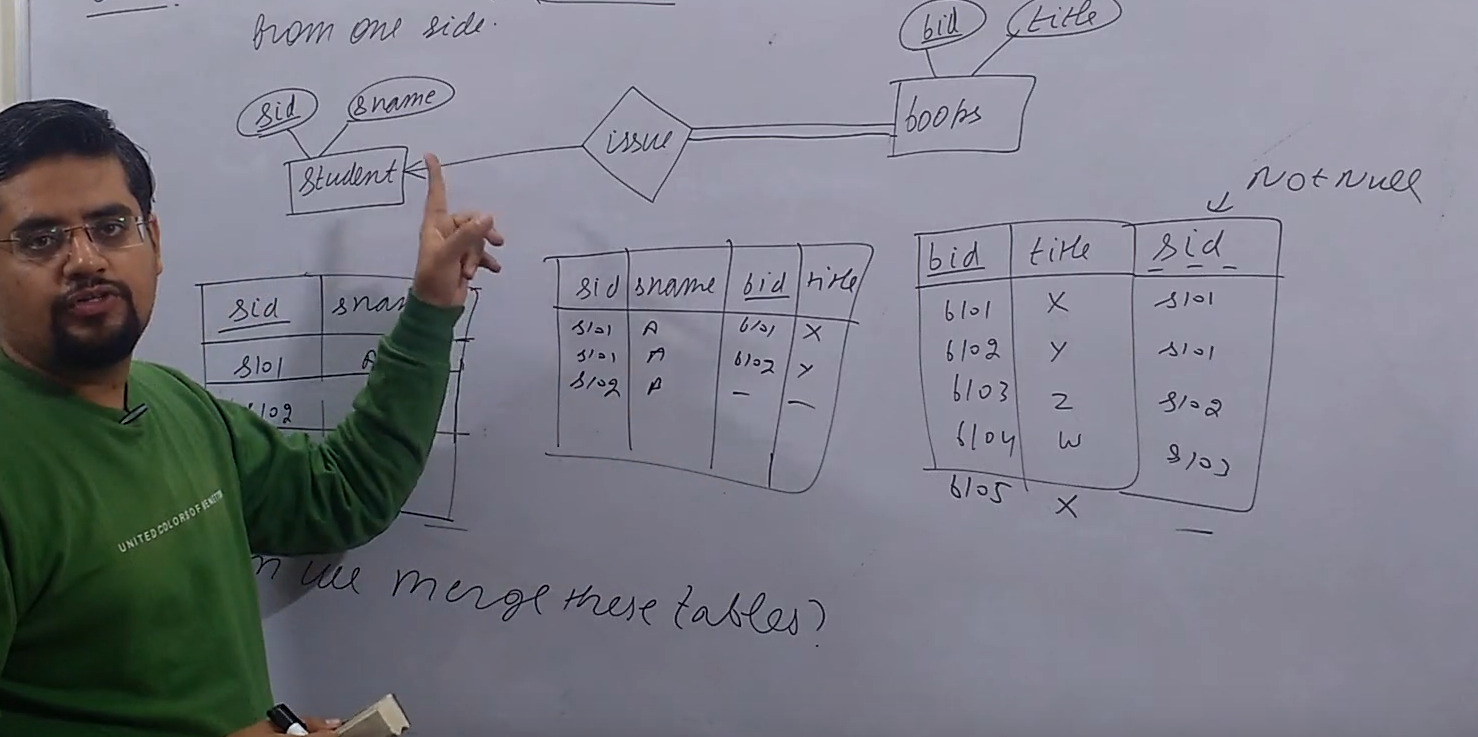 from one side.
bid title
sid sname
issue
books
student
Not Null
sid sname bid title
s101 A b101 X
s101 A b102 Y
s102 A — —
bid title sid
b101 X s101
b102 Y s101
b103 Z s102
b104 W s103
b105 X —
sid
s101 A
s102
we merge these tables?
UNITED COLORS OF BENETTON